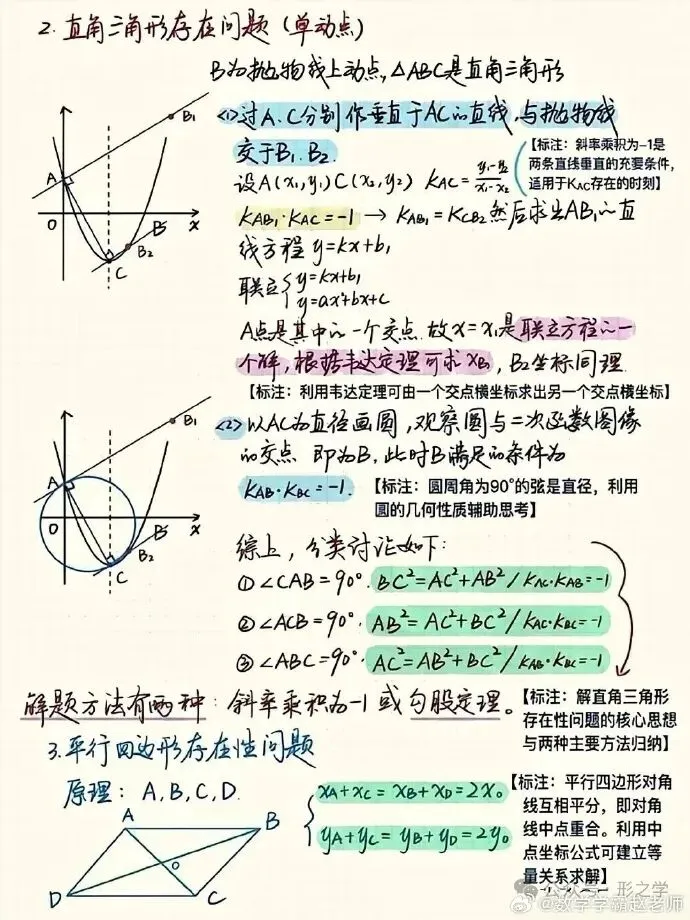 2. 直角三角形存在问题(单动点)
B为抛物线上动点,△ABC是直角三角形
<1>过A、C分别作垂直于AC的直线,与抛物线
交于B₁、B₂.
【标注:斜率乘积为-1是
两条直线垂直的充要条件,
适用于KAC存在的时刻】
设A(x₁,y₁) C(x₂,y₂) KAC=(y₁-y₂)/(x₁-x₂)
KAB₁·KAC=-1 → KAB₁=KCB₂ 然后求出AB₁的直
线方程 y=kx+b₁
联立{y=kx+b₁
y=ax²+bx+c
A点是其中的一个交点.故x=x₁是联立方程的一
个解,根据韦达定理可求xB₁,B₂坐标同理.
【标注:利用韦达定理可由一个交点横坐标求出另一个交点横坐标】
A
B₁
O
x
B
B₂
C
<2>以AC为直径画圆,观察圆与二次函数图像
的交点 即为B,此时B满足的条件为
KAB·KBC=-1.
【标注:圆周角为90°的弦是直径,利用
圆的几何性质辅助思考】
A
B₁
O
x
B
B₂
C
综上,分类讨论如下:
① ∠CAB=90°. BC²=AC²+AB²/KAC·KAB=-1
② ∠ACB=90°. AB²=AC²+BC²/KAC·KBC=-1
③ ∠ABC=90°. AC²=AB²+BC²/KAB·KBC=-1
解题方法有两种:斜率乘积为-1或勾股定理。
【标注:解直角三角形
存在性问题的核心思想
与两种主要方法归纳】
3.平行四边形存在性问题
原理:A,B,C,D.
{xA+xC=xB+xD=2x₀
yA+yC=yB+yD=2y₀
【标注:平行四边形对角
线互相平分,即对角
线中点重合。利用中
点坐标公式可建立等
量关系求解】
A
B
O
D
C
形之学
@数学学霸赵老师